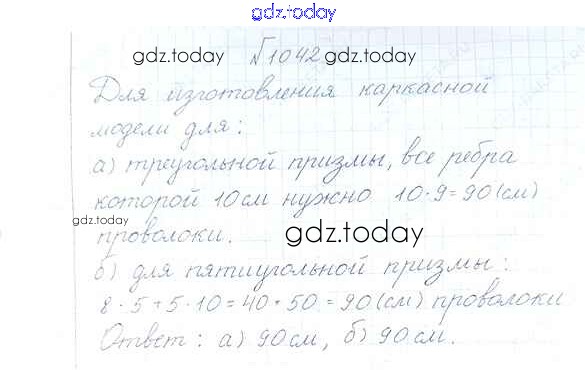 gdz.today
gdz.today №1042 gdz.today
Для изготовления каркасной
модели для:
а) треугольной призмы, все ребра
которой 10 см нужно 10·9=90(см)
gdz.today
проволоки. gdz.today
б) для пятиугольной призмы:
8·5+5·10=40+50=90(см) проволоки
Ответ: а) 90см, б) 90см.